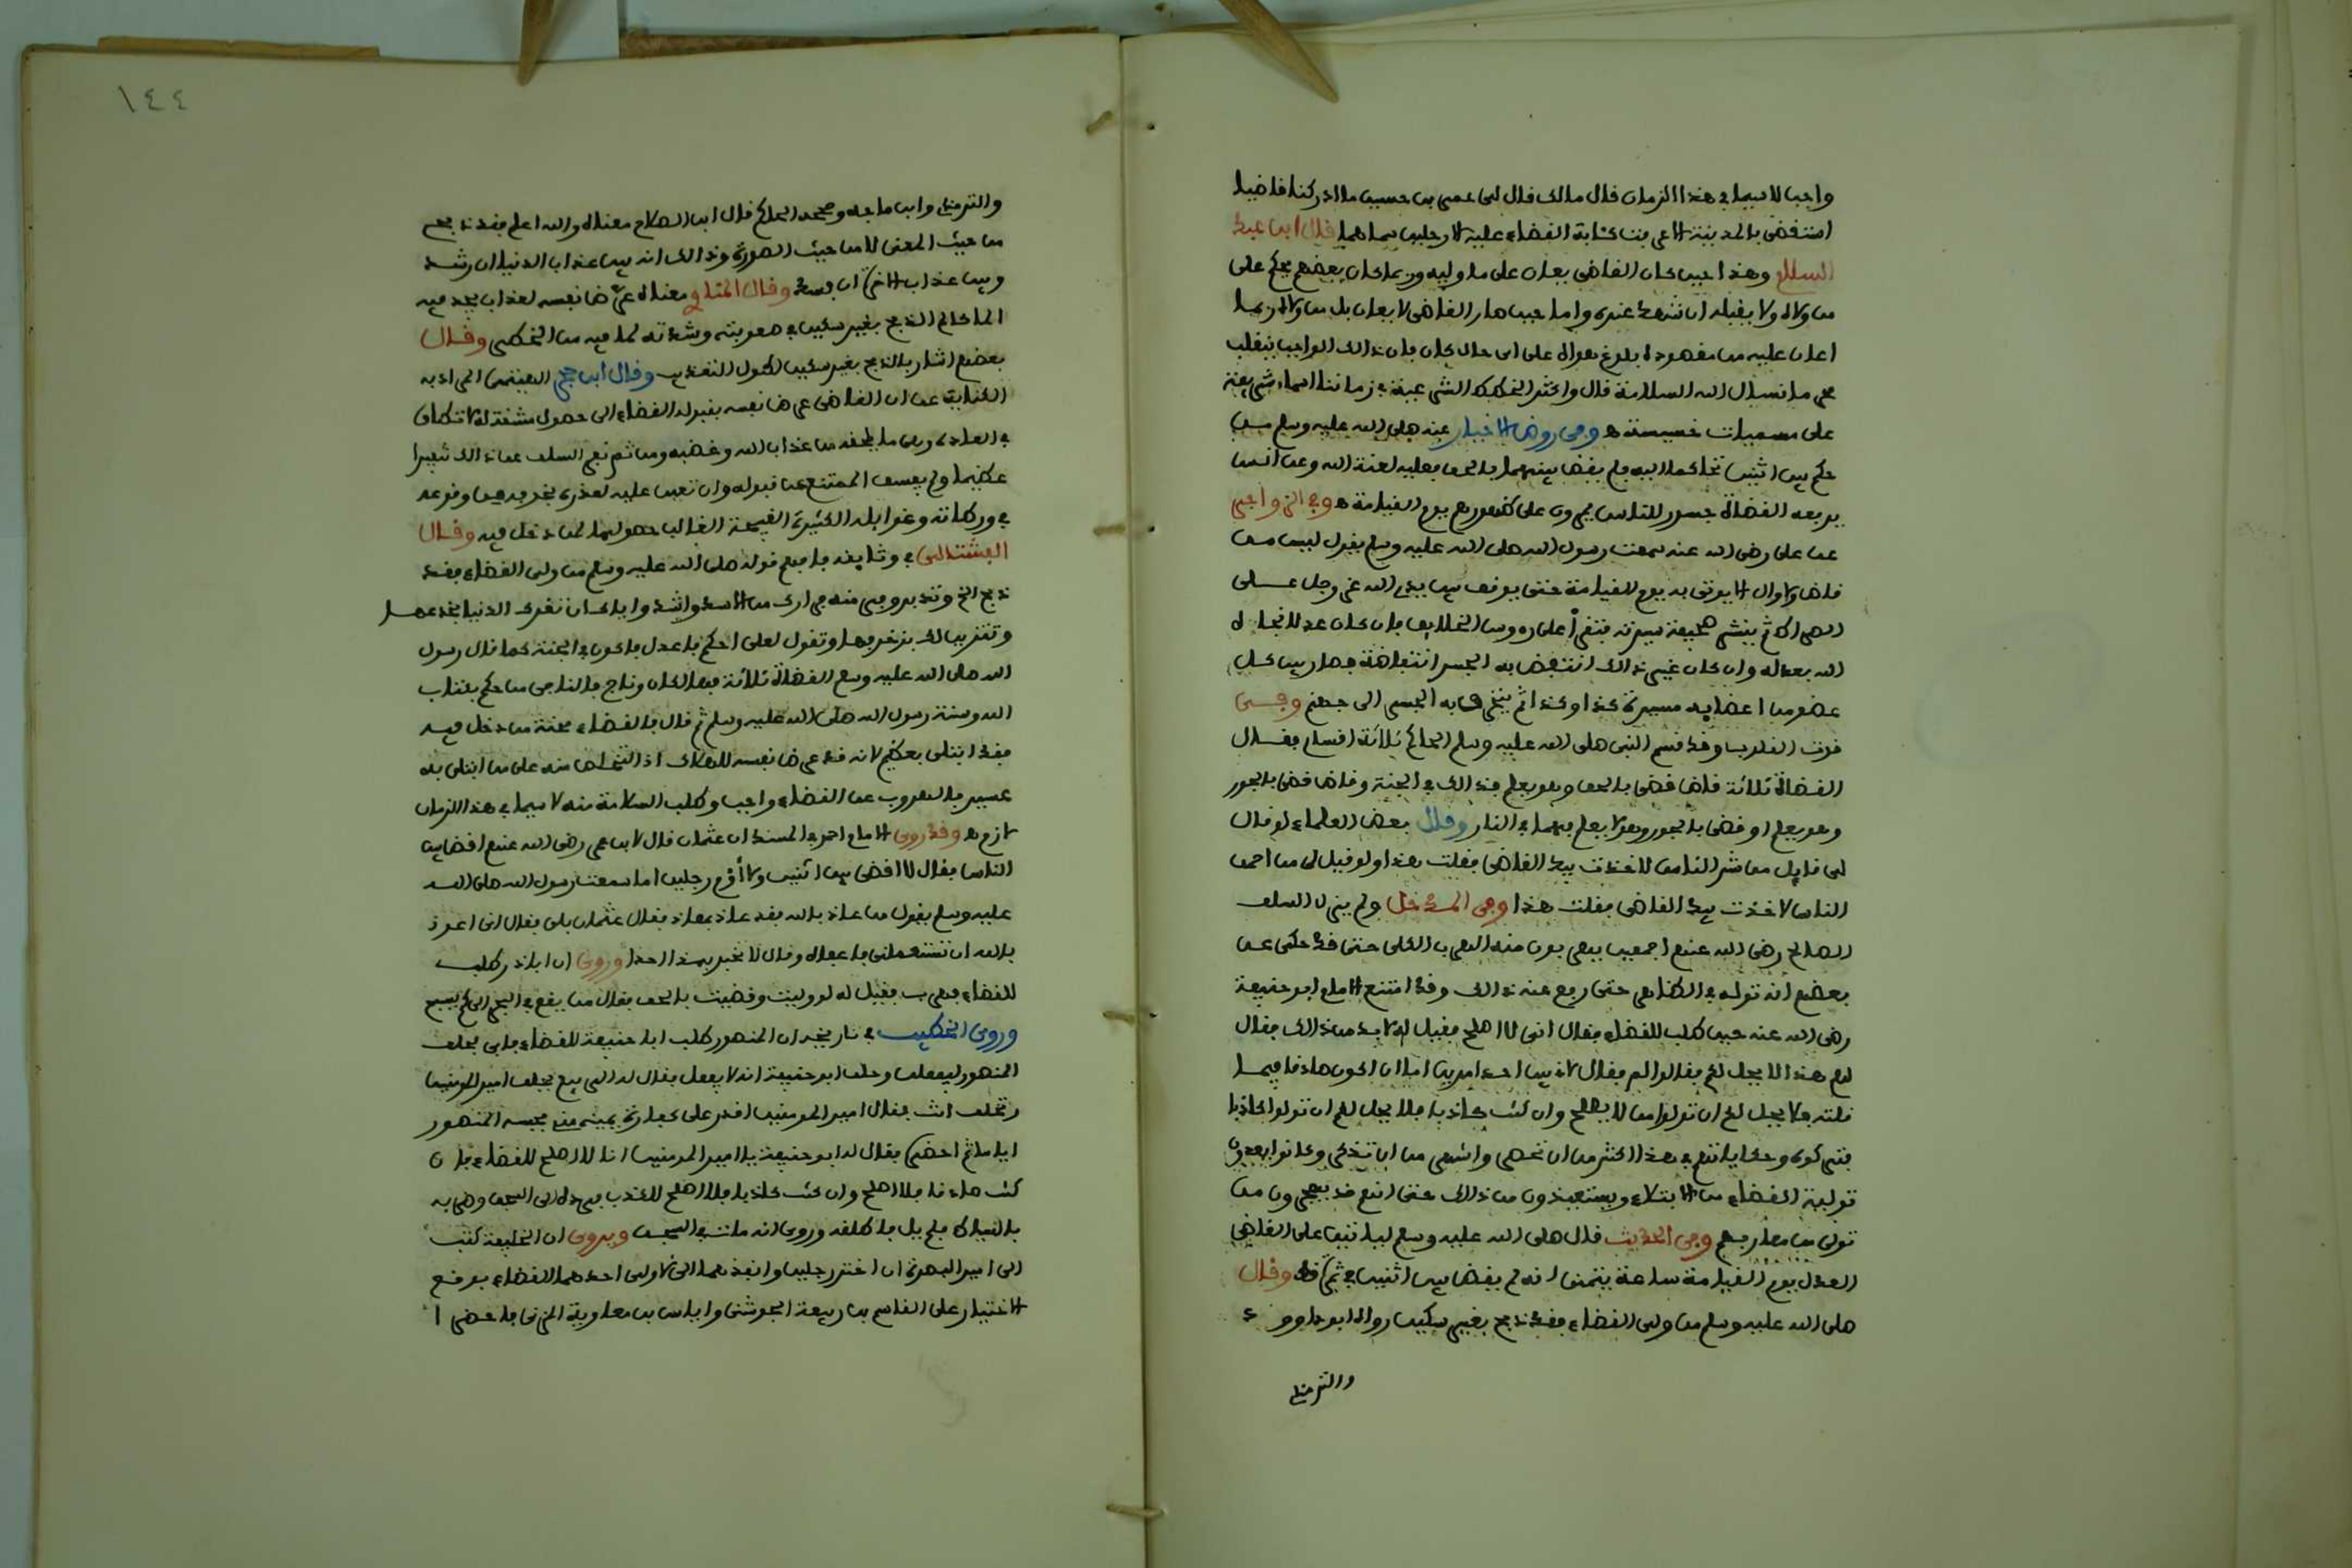 واجبا لا سيما في هذا الزمان قال مالك قال لي عمر بن حسين ما ادركنا قاضيا
استقضي بالمدينة الا عرفت كئابة القضاء عليه الا رجلين سماهما قال ابن عبد
السلام وهذا حين كان القاضي يعان على ما وليه وربما كان بعضهم يحكم على
من ولاه ولا يقبله ان شهد عنده واما حين صار القاضي لا يعان بل من ولاه ربما
اعان عليه من مقصوده بلوغ هواه على اي حال كان فان ذلك الواجب ينقلب
محرما نسال الله السلامة قال واكثر الخطط الشرعية في زماننا اسماء شريفة
على مسميات خسيسة ه وفي روض الاخيار عنه صلى الله عليه وسلم من
حكم بين اثنين تحاكما اليه فلم يقض بينهما بالحق فعليه لعنة الله وعن انس
يرفعه القضاة جسور للناس يمرون على ظهورهم يوم القيامة ه وفي الزواجر
عن علي رضي الله عنه سمعت رسول الله صلى الله عليه وسلم يقول ليس من
قاض ولا وال الا يوتى به يوم القيامة حتى يوقف بين يدي الله عز وجل على
الصراط ثم ينشر صحيفة سيرته فتقرأ على رءوس الخلايق فان كان عدلا نجاه
الله بعدله وان كان غير ذلك انتفض به الجسر انتفاضة فصار بين كل
عضو من اعضايه مسيرة كذا وكذا ثم ينخرق به الجسر الى جهنم وفي
قوت القلوب وقد قسم النبي صلى الله عليه وسلم الحاكم ثلاثة اقسام فقال
القضاة ثلاثة قاض قضى بالحق وهو يعلم فذلك في الجنة وقاض قضى بالجور
وهو يعلم او قضى بالجور وهو لا يعلم فهما في النار وقال بعض العلماء لو قال
لي قايل من اشر الناس لاخذت بيد القاضي فقلت هذا ولو قيل لي من احمق
الناس لاخذت بيد القاضي فقلت هذا وفي المدخل ولم يزل السلف
الصالح رضي الله عنهم اجمعين يهربون منه الهرب الكلي حتى قد حكي عن
بعضهم انه توله في الظاهر حتى رفع عنه ذلك وقد امتنع الامام ابو حنيفة
رضي الله عنه حين طلب للقضاء فقال اني لا اصلح فقيل له لا بد من ذلك فقال
لهم هذا لا يحل لكم فقالوا لم فقال لاني بين احد امرين اما ان اكون صادقا فيما
قلته فلا يحل لكم ان تولوا من لا يصلح وان كنت كاذبا فلا يحل لكم ان تولوا كاذبا
فتركوه وحكاياتهم في هذا اكثر من ان تحصى واشهر من ان تذكر وكانوا يعدون
تولية القضاء من الابتلاء ويستعيذون من ذلك حتى انهم قد يهجرون من
تولى من معارفهم وفي الحديث قال صلى الله عليه وسلم لياتين على القاضي
العدل يوم القيامة ساعة يتمنى انه لم يقض بين اثنين في تمرة قط وقال
صلى الله عليه وسلم من ولي القضاء فقد ذبح بغير سكين رواه ابو داوود
والترمذي
١٤٤
والترمذي وابن ماجه وصححه الحاكم قال ابن الصلاح معناه والله اعلم فقد ذبح
من حيث المعنى لا من حيث الصورة وذلك انه بين عذاب الدنيا ان رشد
وبين عذاب الاخرة ان فسد وقال المناوي معناه عرض نفسه لعذاب يجد فيه
الما كالم الذبح بغير سكين في صعوبته وشدته لما فيه من الخطر وقال
بعضهم اشار بالذبح بغير سكين لطول التعذيب وقال ابن حجر الهيتمي المراد به
الكناية عن ان القاضي عرض نفسه بقبول القضاء الى حصول مشقة له لا تطاق
في العادة ما يلحقه من عذاب الله وغضبه ومن ثم نفر السلف عن ذلك نفيرا
عظيما ولم يفسق الممتنع من قبوله وان تعين عليه لعذره بخوفه من وقوعه
في ورطاته وغوايله الكثيرة القبيحة الغالب حصولها لمن دخل فيه وقال
الفشتالي في وثايقه فافهم قوله صلى الله عليه وسلم من ولي القضاء فقد
ذبح الخ وتدبره وفر منه فرارك من الاسد واشد واياك ان تغرك الدنيا بخدعها
وتتزين لك بزخرفها وتقول لعلي احكم فاعدل فاكون في الجنة كما قال رسول
الله صلى الله عليه وسلم القضاة ثلاثة فهالكان وناج فالناجي من حكم بكتاب
الله وسنة رسول الله صلى الله عليه وسلم ثم قال فالقضاء محنة من دخل فيه
فقد ابتلي بعظيم لانه قد عرض نفسه للهلاك اذ التخلص منه على من ابتلي به
عسير فالهروب عن القضاء واجب وطلب السلامة منه لا سيما في هذا الزمان
لازم ه وقد روى الامام احمد في المسند ان عثمان قال لابن عمر رضي الله عنهم اقض بين
الناس فقال لا اقضي بين اثنين ولا أؤم رجلين اما سمعت رسول الله صلى الله
عليه وسلم يقول من عاذ بالله فقد عاذ بمعاذ فقال عثمان بلى فقال اني اعوذ
بالله ان تستعملني فاعفاه وقال لا تخبر بهذا احدا وروي ان اباذر طلب
للقضاء فهرب فقيل له لو وليت وقضيت بالحق فقال من يقع في البحر الى كم يسبح
وروى الخطيب في تاريخه ان المنصور طلب ابا حنيفة للقضاء فابى فحلف
المنصور ليفعلن وحلف ابو حنيفة انه لا يفعل فقال له الربيع يحلف امير المومنين
وتحلف انت فقال امير المومنين اقدر على كفارة يمينه مني فحبسه المنصور
اياما ثم احضره فقال له ابو حنيفة يا امير المومنين انا لا اصلح للقضاء فان
كنت صادقا فلا اصلح وان كنت كاذبا فلا اصلح للكذب فرده الى السجن وضربه
بالسياط فلم يل ما كلفه وروي انه مات في السجن ويروى ان الخليفة كتب
الى امير البصرة ان اختر رجلين وانفذهما الي لاولي احدهما القضاء فوقع
الاختيار على القاسم بن ربيعة الجوشني واياس بن معاوية المزني فاحضرا